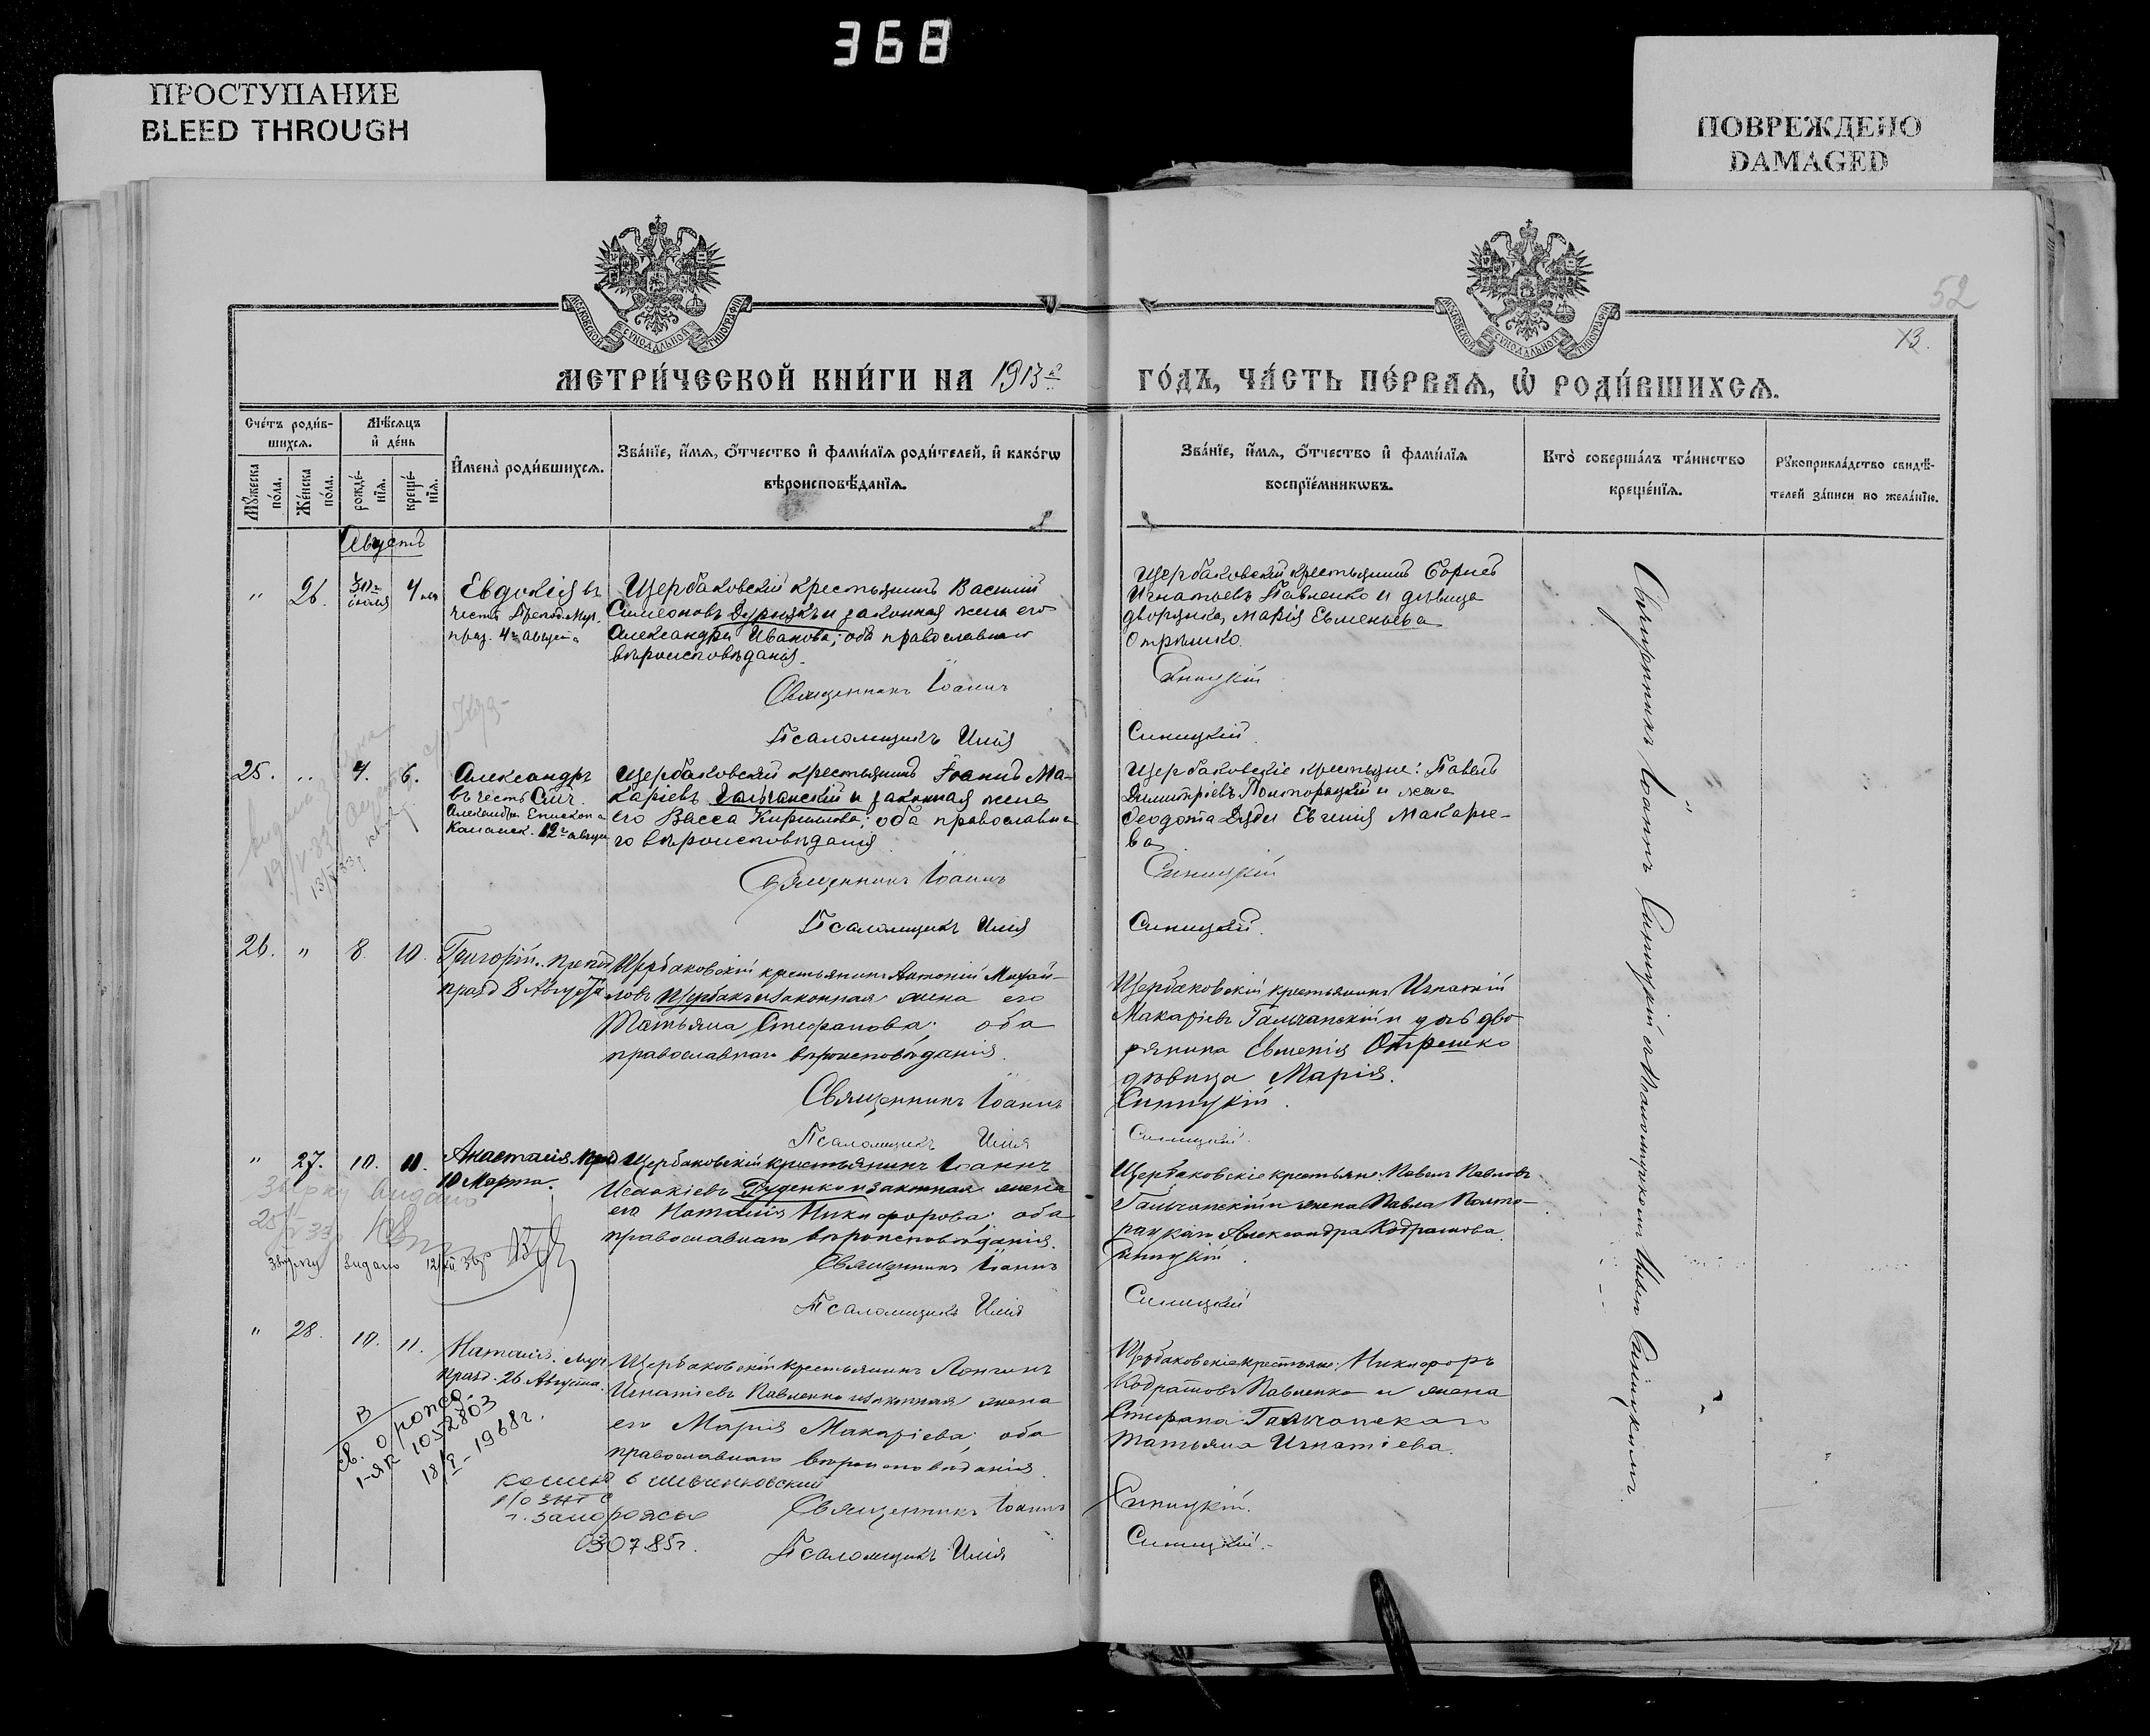 368
ПРОСТУПАНИЕ
BLEED THROUGH
ПОВРЕЖДЕНО
DAMAGED
МОСКОВСКОЙ СѴНОДАЛЬНОЙ ТИПОГРАФІИ
МОСКОВСКОЙ СѴНОДАЛЬНОЙ ТИПОГРАФІИ
52
13.
МЕТРИ́ЧЕСКОЙ КНИ́ГИ НА 1913й ГО́ДЪ, ЧА́СТЬ ПЕ́РВАѦ, Ѽ РОДИ́ВШИХСѦ.
Сче́тъ роди́в-
шихсѧ.
Мѣ́сѧцъ
и҆ де́нь
Мꙋ́жеска
по́ла.
Же́нска
по́ла.
рожде́-
нїѧ.
креще́-
нїѧ.
И҆мена̀ роди́вшихсѧ.
Зва́нїе, и҆́мѧ, ѻ҆́тчество и҆ фами́лїѧ роди́телей, и҆ како́гѡ
вѣроисповѣ́данїѧ.
Зва́нїе, и҆́мѧ, ѻ҆́тчество и҆ фами́лїѧ
воспрїе́мникѡвъ.
Кто̀ соверша́лъ та́инство
креще́нїѧ.
Рꙋкоприкла́дство свидѣ́-
телей за́писи по жела́нїю.
Августъ
" 26. іюля 4
Евдокія въ
честь Препод. Муч.
праз. 4 августа
Щербаковскій крестьянинъ Василій
Симеоновъ и законная жена его
Александра Иванова; оба православнаго
вѣроисповѣданія.
Священникъ Іоаннъ
Псаломщикъ Илія
Щербаковскій крестьянинъ Борисъ
Игнатьевъ Павленко и дѣвица
дворянка Марія Евменьева
Отрѣшко.
Синицкій
Синицкій.
25. " 4. 6.
Александръ
въ честь Свщ.
Александра Епископа
Команск. 12 августа
Щербаковскій крестьянинъ Іоаннъ Ма-
каріевъ Гальчанскій и законная жена
его Васса Кириллова; оба православна-
го вѣроисповѣданія
Священникъ Іоаннъ
Псаломщикъ Илія
Щербаковскіе крестьяне: Павелъ
Димитріевъ Полторацкій и жена
Ѳеодота Евгенія Макарье-
ва
Синицкій
Синицкій.
26. " 8. 10.
Григорій. препод
празд 8 Августа
Щербаковскій крестьянинъ Антоній Михай-
ловъ Щербакъ и законная жена его
Татьяна Стефанова; оба
православнаго вѣроисповѣданія.
Священникъ Іоаннъ
Псаломщикъ Илія
Щербаковскій крестьянинъ Игнатій
Макаріевъ Гальчанскій и дочь дво-
рянина Евменія Отрешко
дѣвица Марія.
Синицкій.
Синицкій.
" 27. 10. 11.
Анастасія.
10 Марта.
Щербаковскій крестьянинъ Іоаннъ
Исаакіевъ Руденко и законная жена
его Наталія Никифорова; оба
православнаго вѣроисповѣданія.
Священникъ Іоаннъ
Псаломщикъ Илія
Щербаковскіе крестьяне: Павелъ Павловъ
Гальчанскій и жена Павла Полто-
рацкаго Александра Кодратова.
Синицкій.
Синицкій
" 28. 10. 11.
Наталія. муч
празд. 26 Августа.
Щербаковскій крестьянинъ Лонгинъ
Игнатіевъ Павленко и законная жена
его Марія Макаріева; оба
православнаго вѣроисповѣданія.
Священникъ Іоаннъ
Псаломщикъ Илія
Щербаковскіе крестьяне: Никифоръ
Кодратовъ Павленко и жена
Стефана Гальчанскаго
Татьяна Игнатіева.
Синицкій.
Синицкій.
Священникъ Іоаннъ Синицкій съ Псаломщикомъ Иліею Синицкимъ.
В
св. о рожд.
1-ЯР 1052803
18/I-1968г.
копия в Шевченковский
р/о ЗАГС
г. Запорожье
030785г.